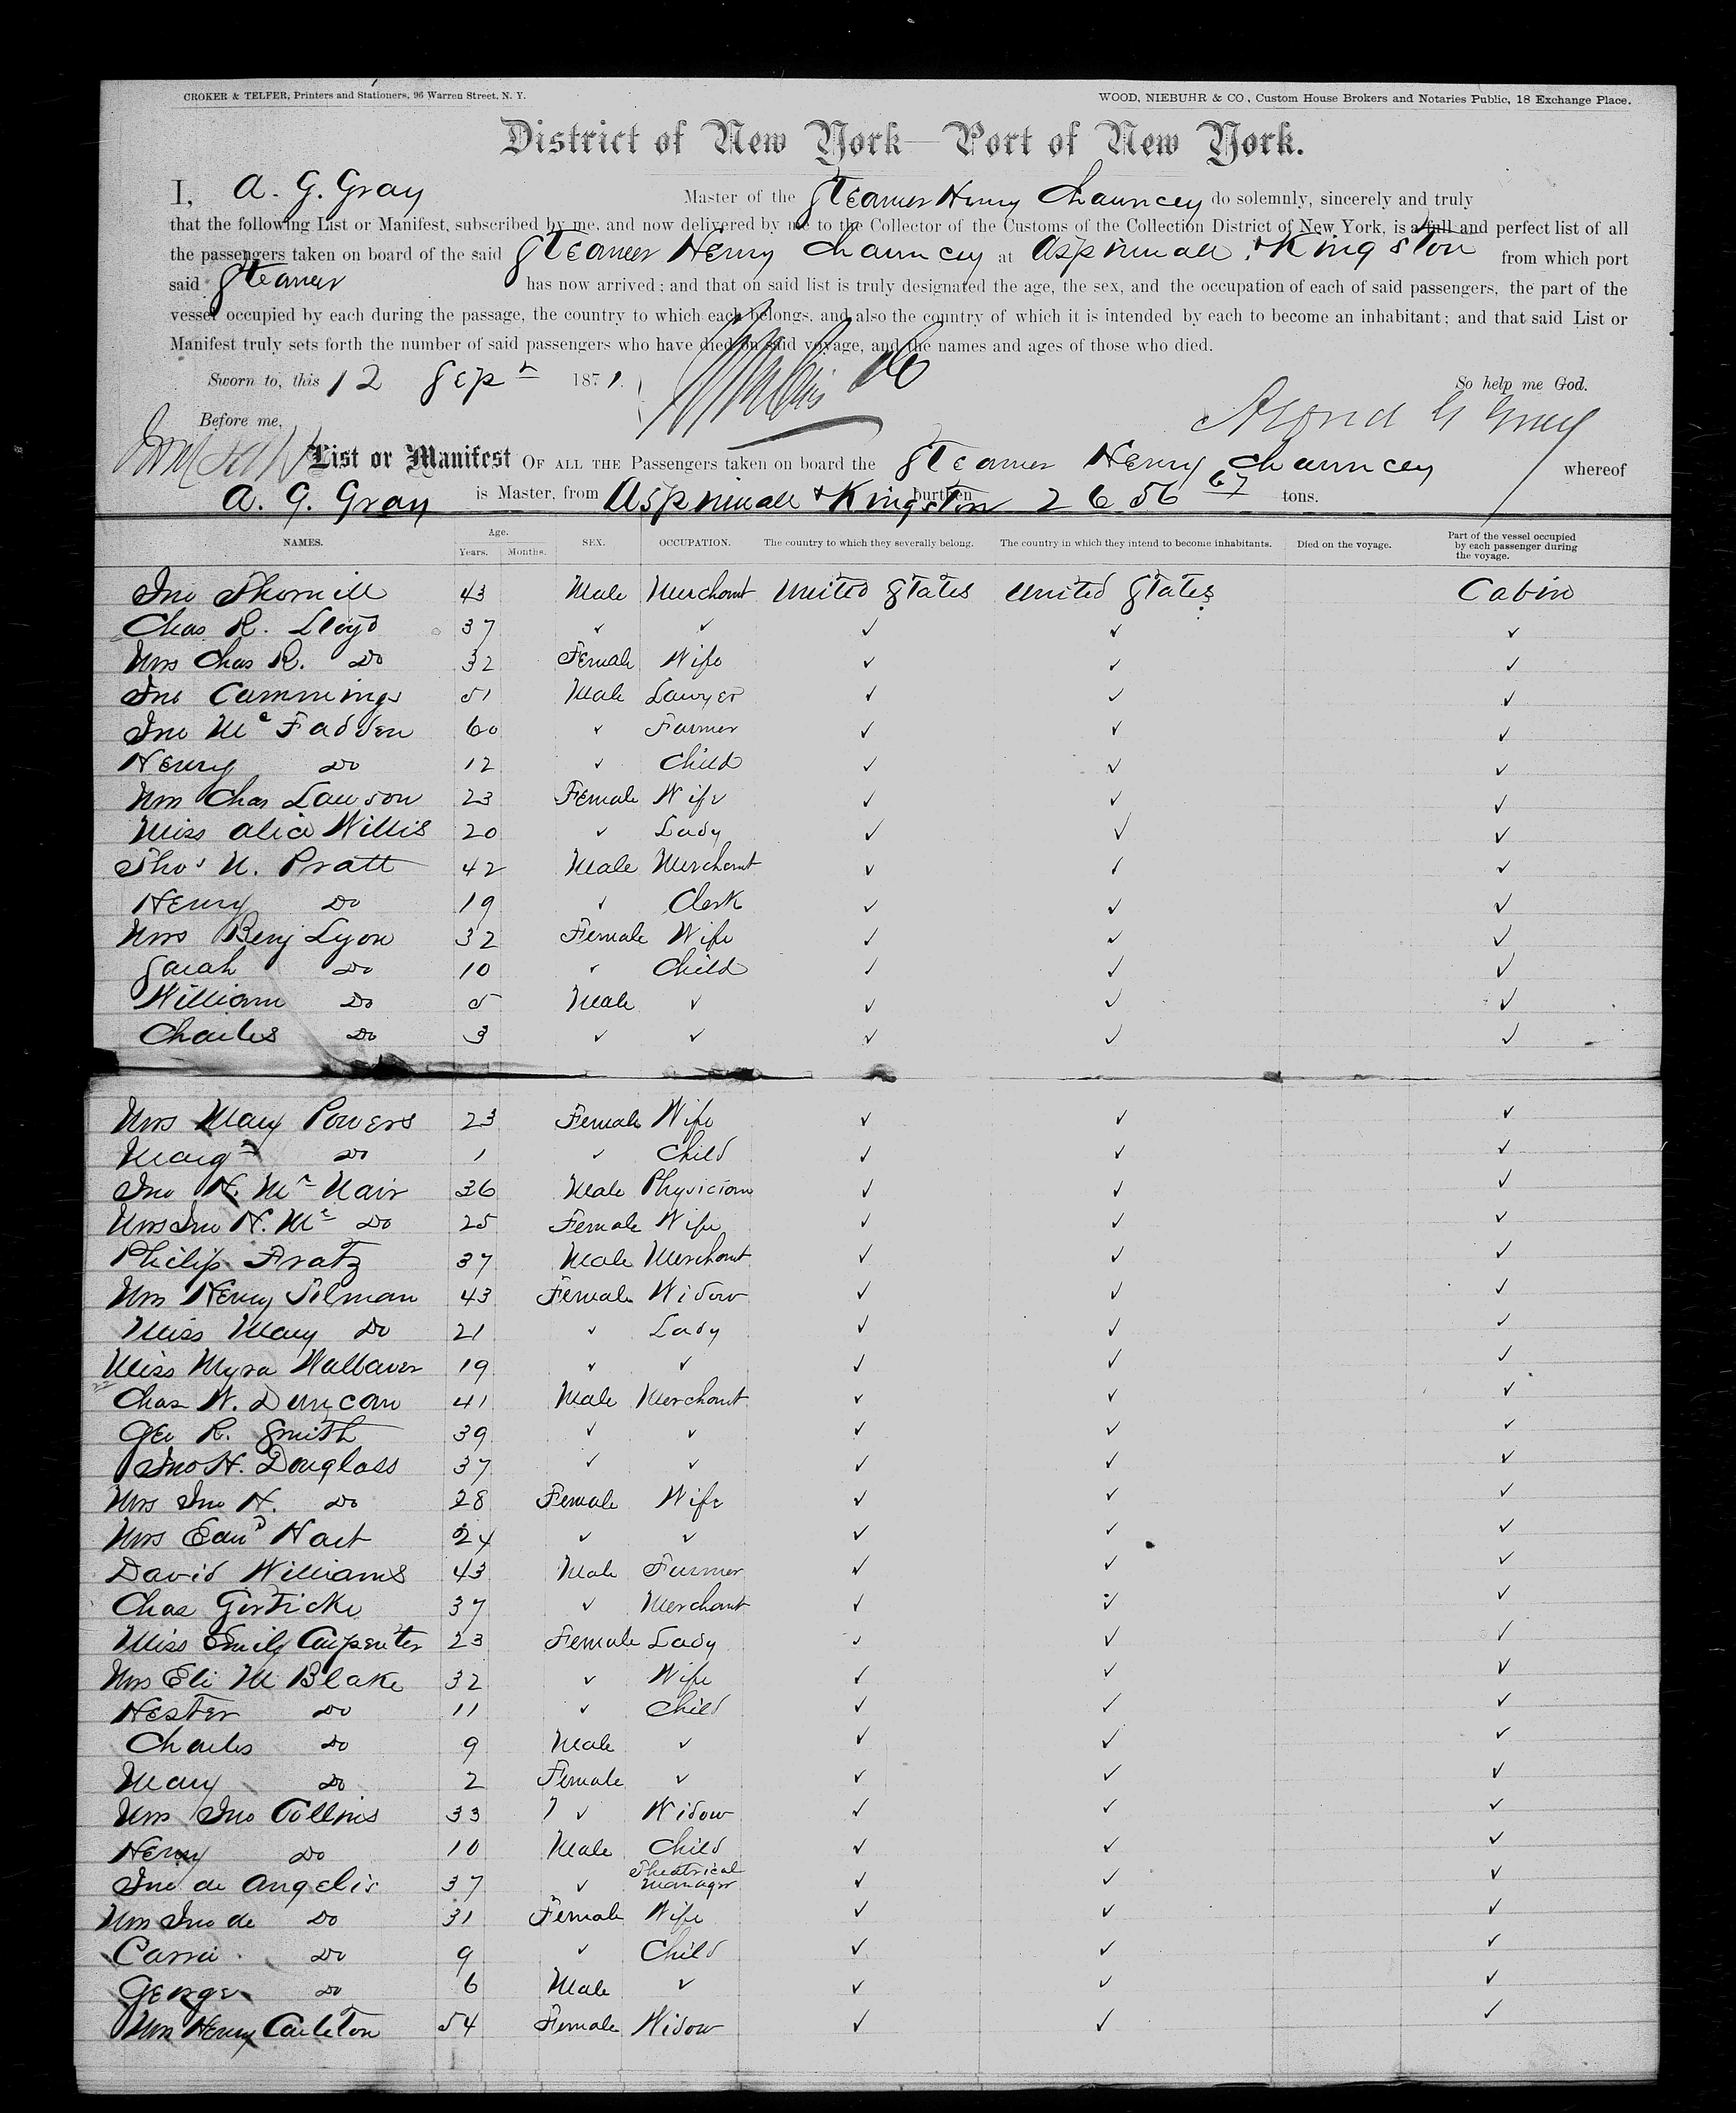 CROKER & TELFER, Printers and Stationers, 96 Warren Street, N. Y. WOOD, NIEBUHR & CO., Custom House Brokers and Notaries Public, 18 Exchange Place.
District of New York—Port of New York.
I, A. G. Gray Master of the Steamer Henry Chauncey do solemnly, sincerely and truly
that the following List or Manifest, subscribed by me, and now delivered by me to the Collector of the Customs of the Collection District of New York, is a full and perfect list of all
the passengers taken on board of the said Steamer Henry Chauncey at Aspinwall & Kingston from which port
said Steamer has now arrived: and that on said list is truly designated the age, the sex, and the occupation of each of said passengers, the part of the
vessel occupied by each during the passage, the country to which each belongs, and also the country of which it is intended by each to become an inhabitant; and that said List or
Manifest truly sets forth the number of said passengers who have died on said voyage, and the names and ages of those who died.
Sworn to, this 12 Sept 1871. So help me God.
Before me,
List or Manifest OF ALL THE Passengers taken on board the Steamer Henry Chauncey whereof
A. G. Gray is Master, from Aspinwall & Kingston burthen 2656 67 tons.
NAMES. Age. Years. Months. SEX. OCCUPATION. The country to which they severally belong. The country in which they intend to become inhabitants. Died on the voyage. Part of the vessel occupied by each passenger during the voyage.
Jno Thornill 43 Male Merchant United States United States Cabin
Chas R. Lloyd 37 ✓ ✓ ✓ ✓ ✓
Mrs Chas R. Do 32 Female Wife ✓ ✓ ✓
Jno Cummings 51 Male Lawyer ✓ ✓ ✓
Jno Mc Fadden 60 ✓ Farmer ✓ ✓ ✓
Henry Do 12 ✓ Child ✓ ✓ ✓
Mrs Chas Lawson 23 Female Wife ✓ ✓ ✓
Miss Alice Willis 20 ✓ Lady ✓ ✓ ✓
Thos N. Pratt 42 Male Merchant ✓ ✓ ✓
Henry Do 19 ✓ Clerk ✓ ✓ ✓
Mrs Benj Lyon 32 Female Wife ✓ ✓ ✓
Sarah Do 10 ✓ Child ✓ ✓ ✓
William Do 5 Male ✓ ✓ ✓ ✓
Charles Do 3 ✓ ✓ ✓ ✓ ✓
Mrs Mary Powers 23 Female Wife ✓ ✓ ✓
Margt Do 1 ✓ Child ✓ ✓ ✓
Jno H. Mc Nair 36 Male Physician ✓ ✓ ✓
Mrs Jno H. Mc Do 25 Female Wife ✓ ✓ ✓
Philip Fratz 37 Male Merchant ✓ ✓ ✓
Mrs Henry Silman 43 Female Widow ✓ ✓ ✓
Miss Mary Do 21 ✓ Lady ✓ ✓ ✓
Miss Myra Wallaver 19 ✓ ✓ ✓ ✓ ✓
Chas W. Duncan 41 Male Merchant ✓ ✓ ✓
Geo R. Smith 39 ✓ ✓ ✓ ✓ ✓
Jno H. Douglass 37 ✓ ✓ ✓ ✓ ✓
Mrs Jno H. Do 28 Female Wife ✓ ✓ ✓
Mrs Edwd Hart 24 ✓ ✓ ✓ ✓ ✓
David Williams 43 Male Farmer ✓ ✓ ✓
Chas Gosticke 37 ✓ Merchant ✓ ✓ ✓
Miss Emily Carpenter 23 Female Lady ✓ ✓ ✓
Mrs Eli M Blake 32 ✓ Wife ✓ ✓ ✓
Hester Do 11 ✓ Child ✓ ✓ ✓
Charles Do 9 Male ✓ ✓ ✓ ✓
Mary Do 2 Female ✓ ✓ ✓ ✓
Mrs Jno Collins 33 ✓ Widow ✓ ✓ ✓
Henry Do 10 Male Child ✓ ✓ ✓
Jno de Angelis 37 ✓ Theatrical manager ✓ ✓ ✓
Mrs Jno de Do 31 Female Wife ✓ ✓ ✓
Carrie Do 9 ✓ Child ✓ ✓ ✓
George Do 6 Male ✓ ✓ ✓ ✓
Mrs Henry Carleton 54 Female Widow ✓ ✓ ✓